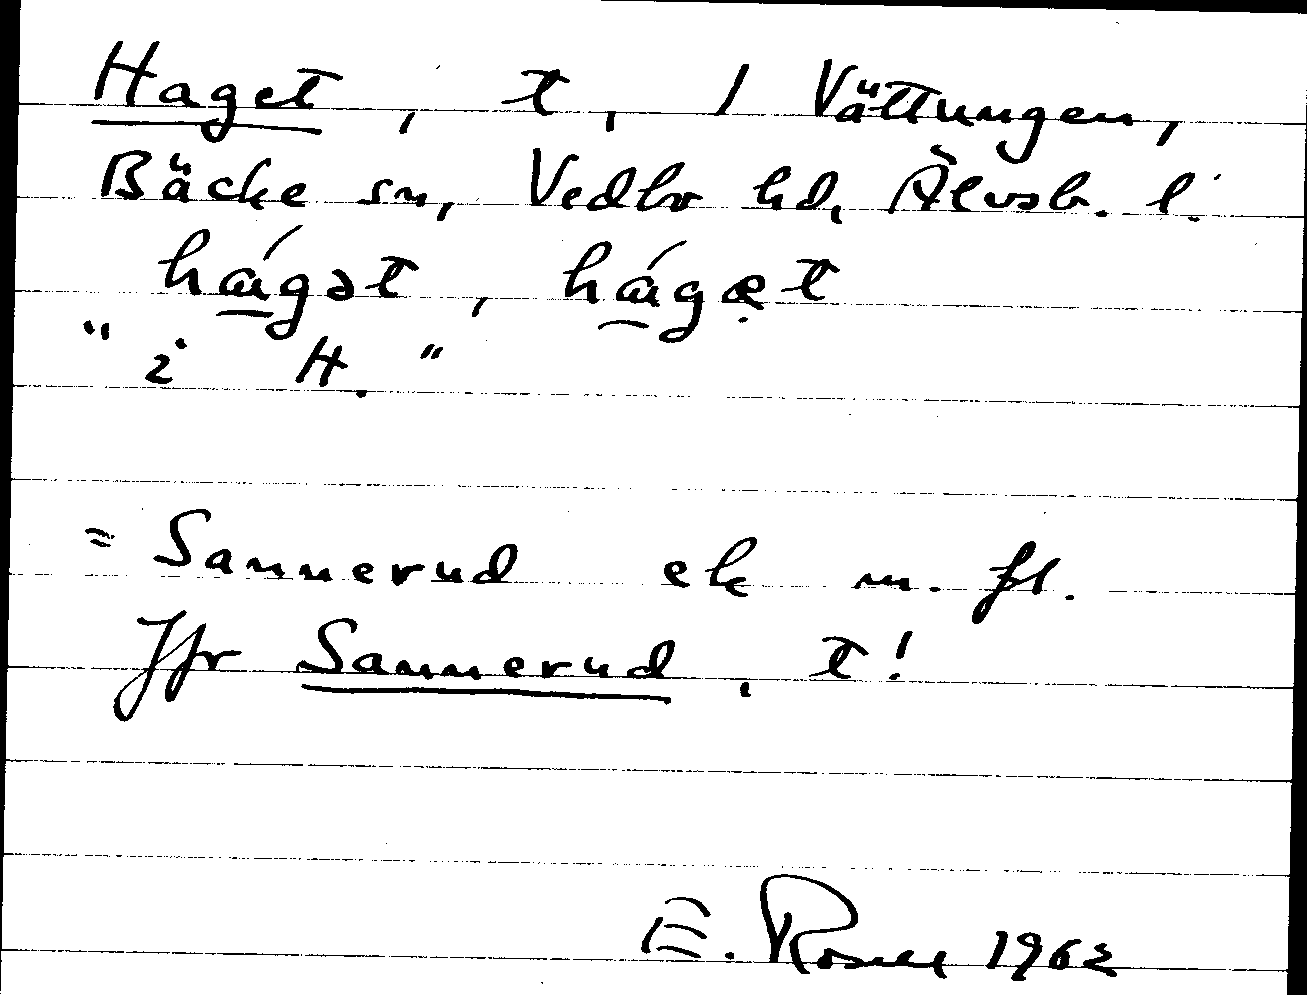 Haget, t, 1 Vättungen,
Bäcke sn, Vedbo hd, Älvsb. l.
há̱gət, há̱gæ̣t
"i H."
= Sannerud ek m. fl.
Jfr Sannerud, t!
E. Rosell 1962